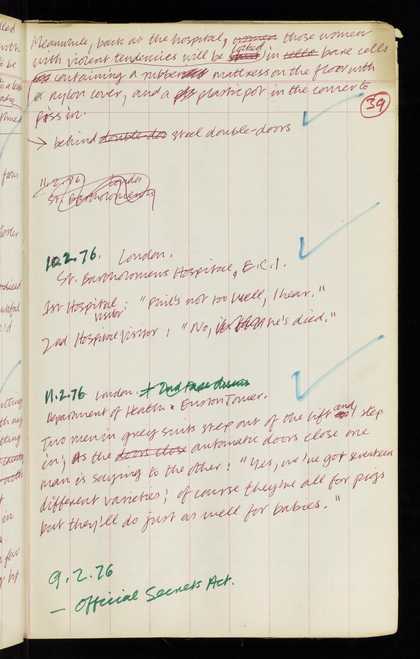 Meanwhile, back at the hospital, women those women
with violent tendencies will be locked in cells bare cells
containing a rubber mattress on the floor with
a nylon cover, and a plastic pot in the corner to
piss in.
39
→ behind double-doo steel double-doors
11.2.76 London
St. Bartholomew's
10.2.76. London.
St. Bartholomew's Hospital, E.C.1.
1st Hospital visitor: "Phil's not too well, I hear."
2nd Hospital visitor: "No, he's died."
11.2.76 London.
Department of Health. Euston Tower.
Two men in grey suits step out of the lift and step
in; As the doors close automatic doors close one
man is saying to the other: "Yes, we've got seventeen
different varieties; of course they're all for pigs
but they'll do just as well for babies."
9.2.76
- Official Secrets Act.